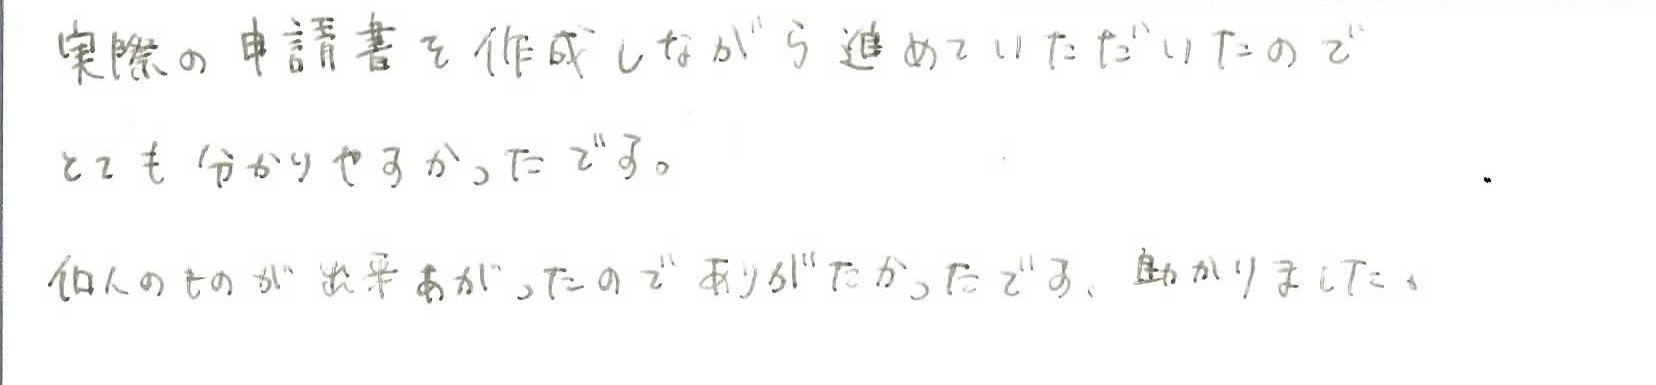 実際の申請書を作成しながら進めていただいたので
とても分かりやすかったです。
個人のものが出来あがったのでありがたかったです、助かりました。